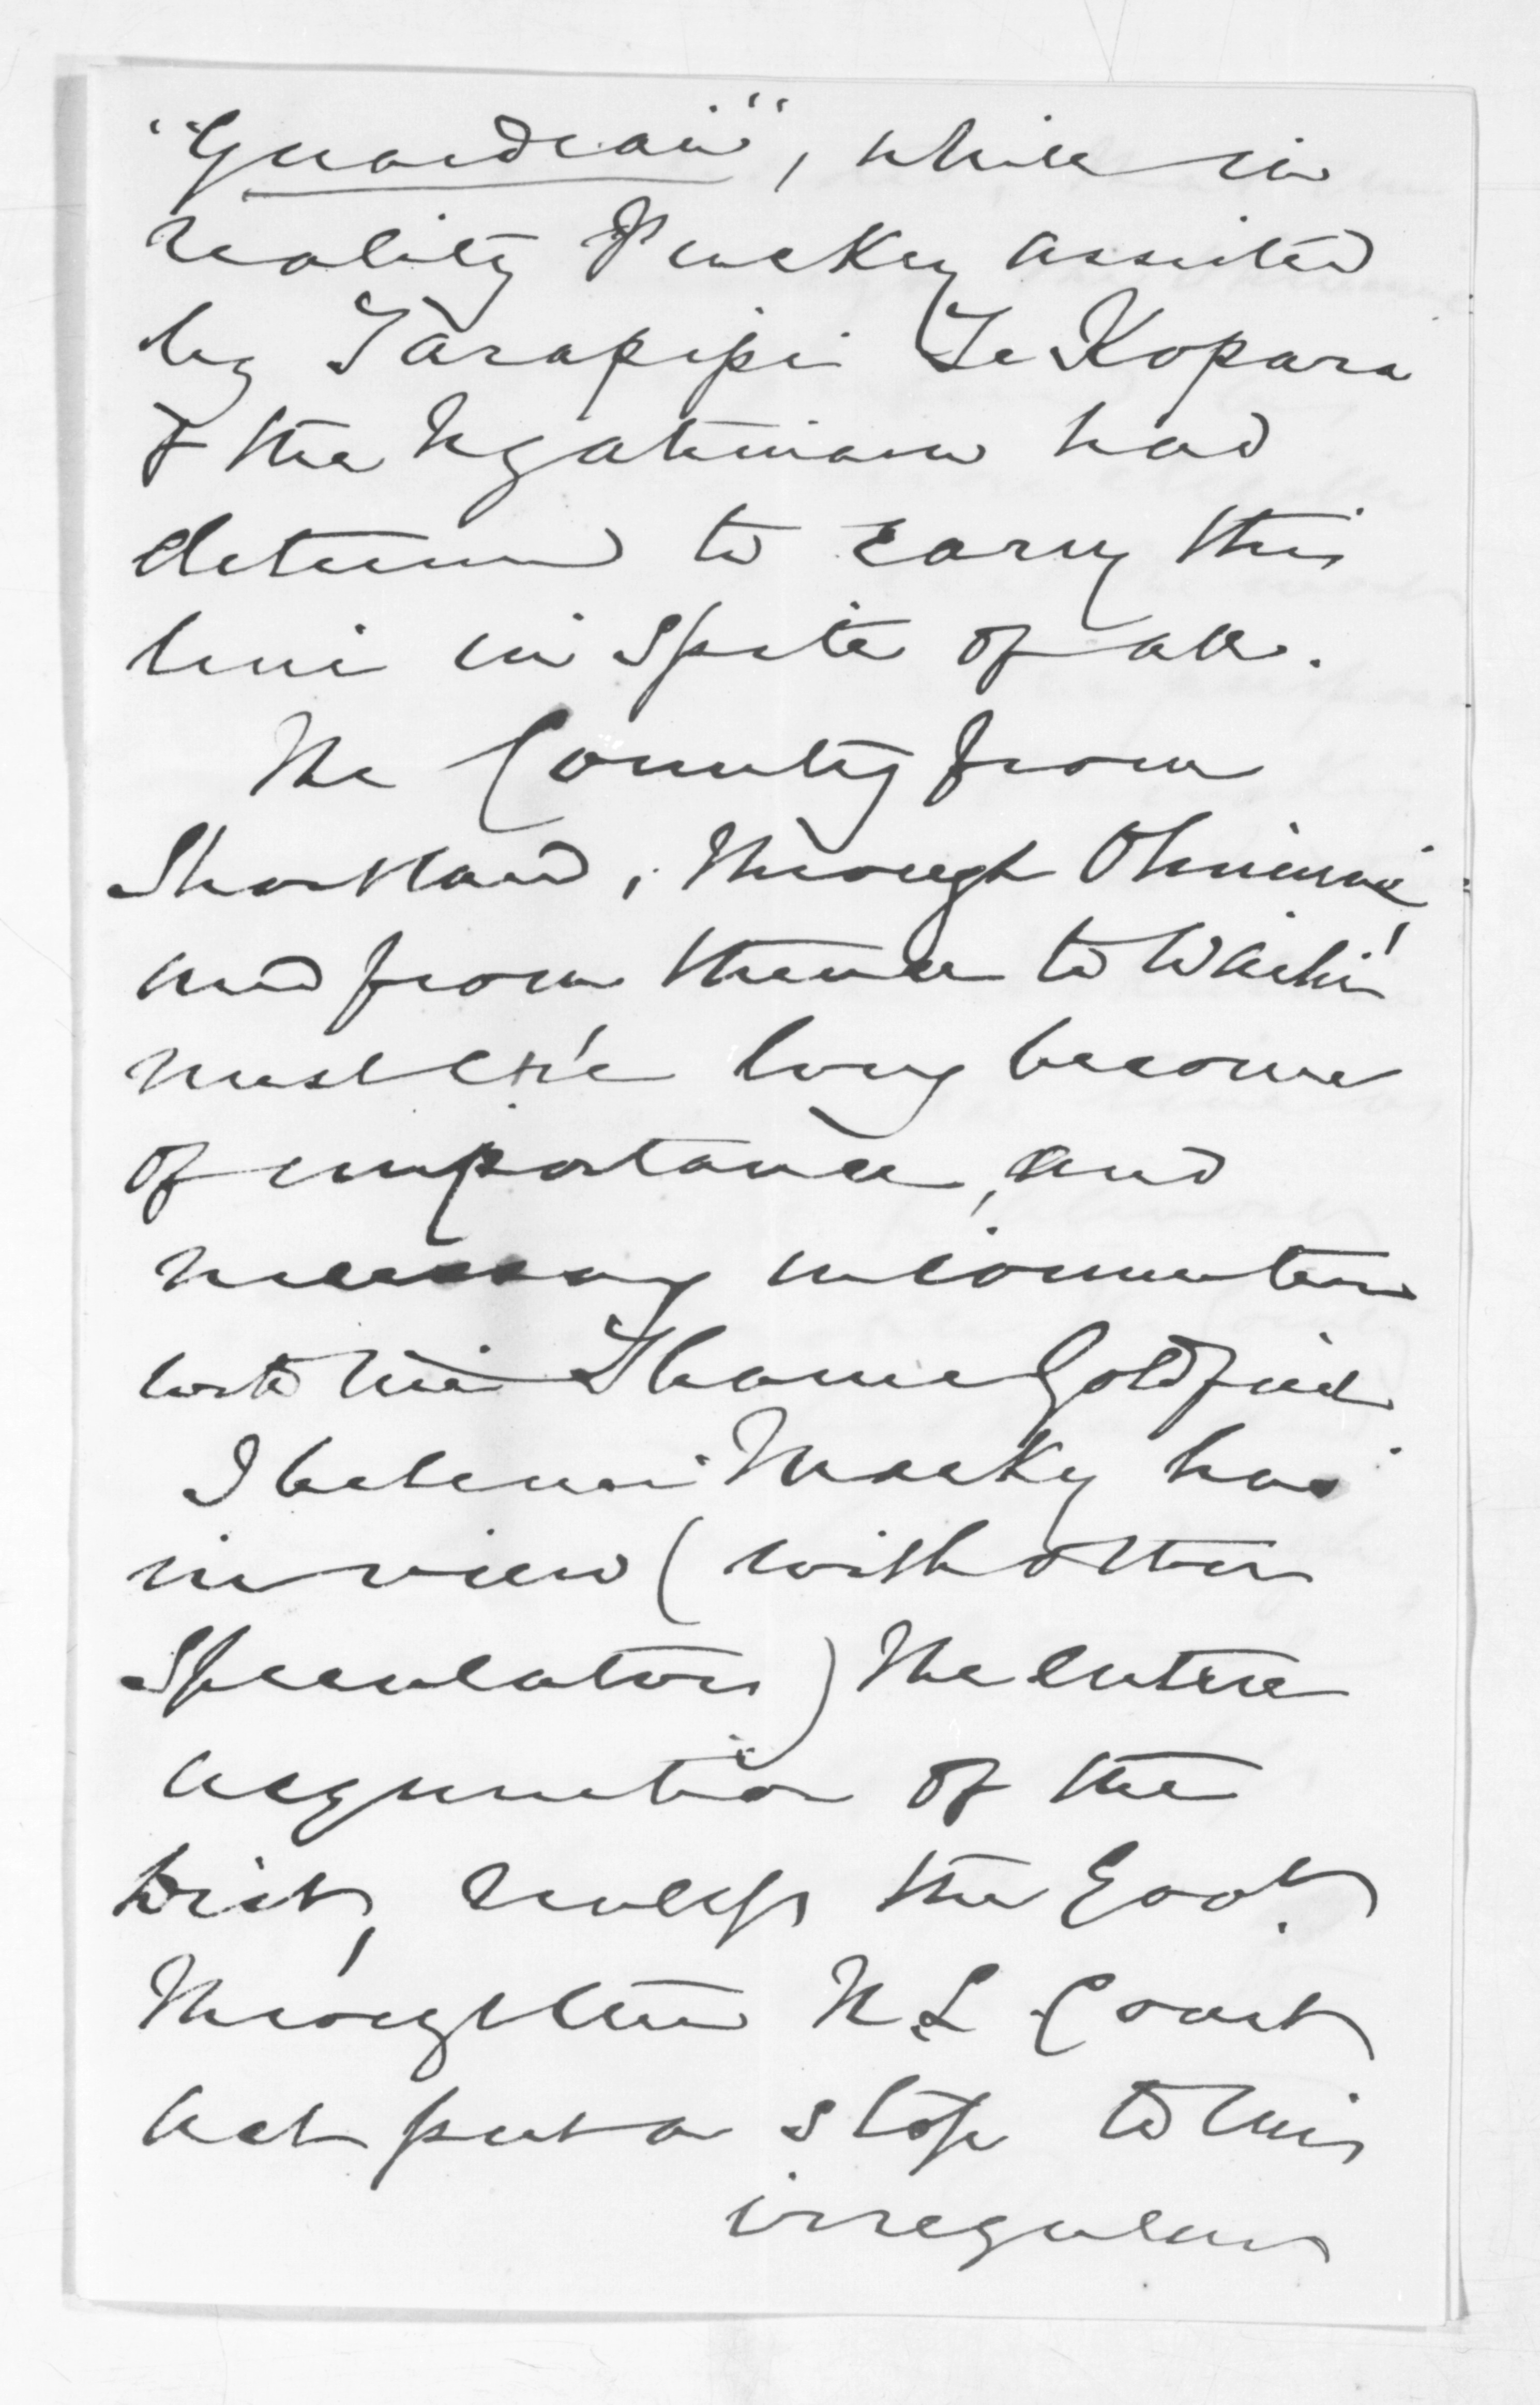 "Guardian", while in
reality Puckey assisted
by Tarapipi Te Kopara
& the Ngatimaru had
determined to carry this
line in spite of all.
The Country from
Shortland, through Ohinemuri
and from thence to Waihi
must ere long become
of importance, and
necessary in connection
with the Thames Goldfield
I believe Mackay has
in view (with other
Speculators) the entire
acquisition of the
District, unless the Govt.
through their N. L Court
Act put a stop to this
irregular